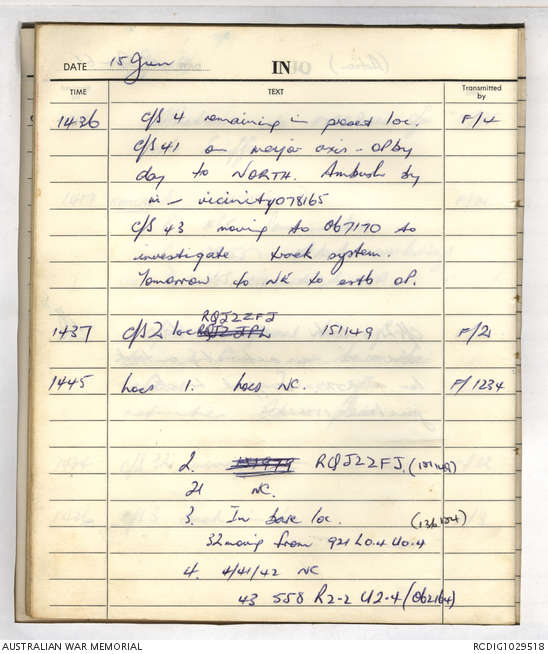 DATE 15 Jun IN
TIME TEXT Transmitted by
1436 c/s 4 remaining in present loc. F/4
c/s 41 on major axis - OP by
day to NORTH. Ambush by
- vicinity 078165
c/s 43 moving to 067170 to
investigate track system.
Tomorrow to NE to estb OP.
RQJZZFJ
1437 c/s 2 loc 151149 F/2
1445 Locs 1. Locs NC. F/1234
2. RQJZZFJ. (151149)
21 NC.
3. In base loc. (136154)
32 moving from 921 L0.4 U0.4
4. 4/41/42 NC
43 558 R2-2 U2-4 (062164)
AUSTRALIAN WAR MEMORIAL RCDIG1029518